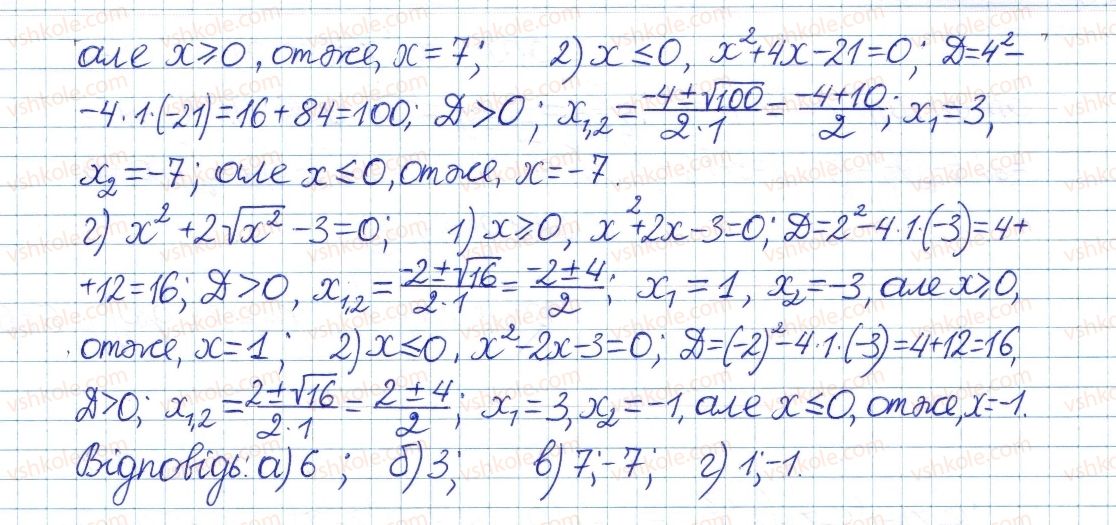 але x≥0, отже, x=7; 2) x≤0, x²+4x-21=0; Д=4²-
-4·1·(-21)=16+84=100; Д>0; x₁,₂=(-4±√100)/(2·1)=(-4+10)/2; x₁=3,
x₂=-7; але x≤0, отже, x=-7
г) x²+2√x²-3=0; 1) x≥0, x²+2x-3=0; Д=2²-4·1·(-3)=4+
+12=16; Д>0, x₁,₂=(-2±√16)/(2·1)=(-2±4)/2; x₁=1, x₂=-3, але x≥0,
отже, x=1; 2) x≤0, x²-2x-3=0; Д=(-2)²-4·1·(-3)=4+12=16,
Д>0; x₁,₂=(2±√16)/(2·1)=(2±4)/2; x₁=3, x₂=-1, але x≤0, отже, x=-1.
Відповідь: а) 6; б) 3; в) 7; -7; г) 1; -1.